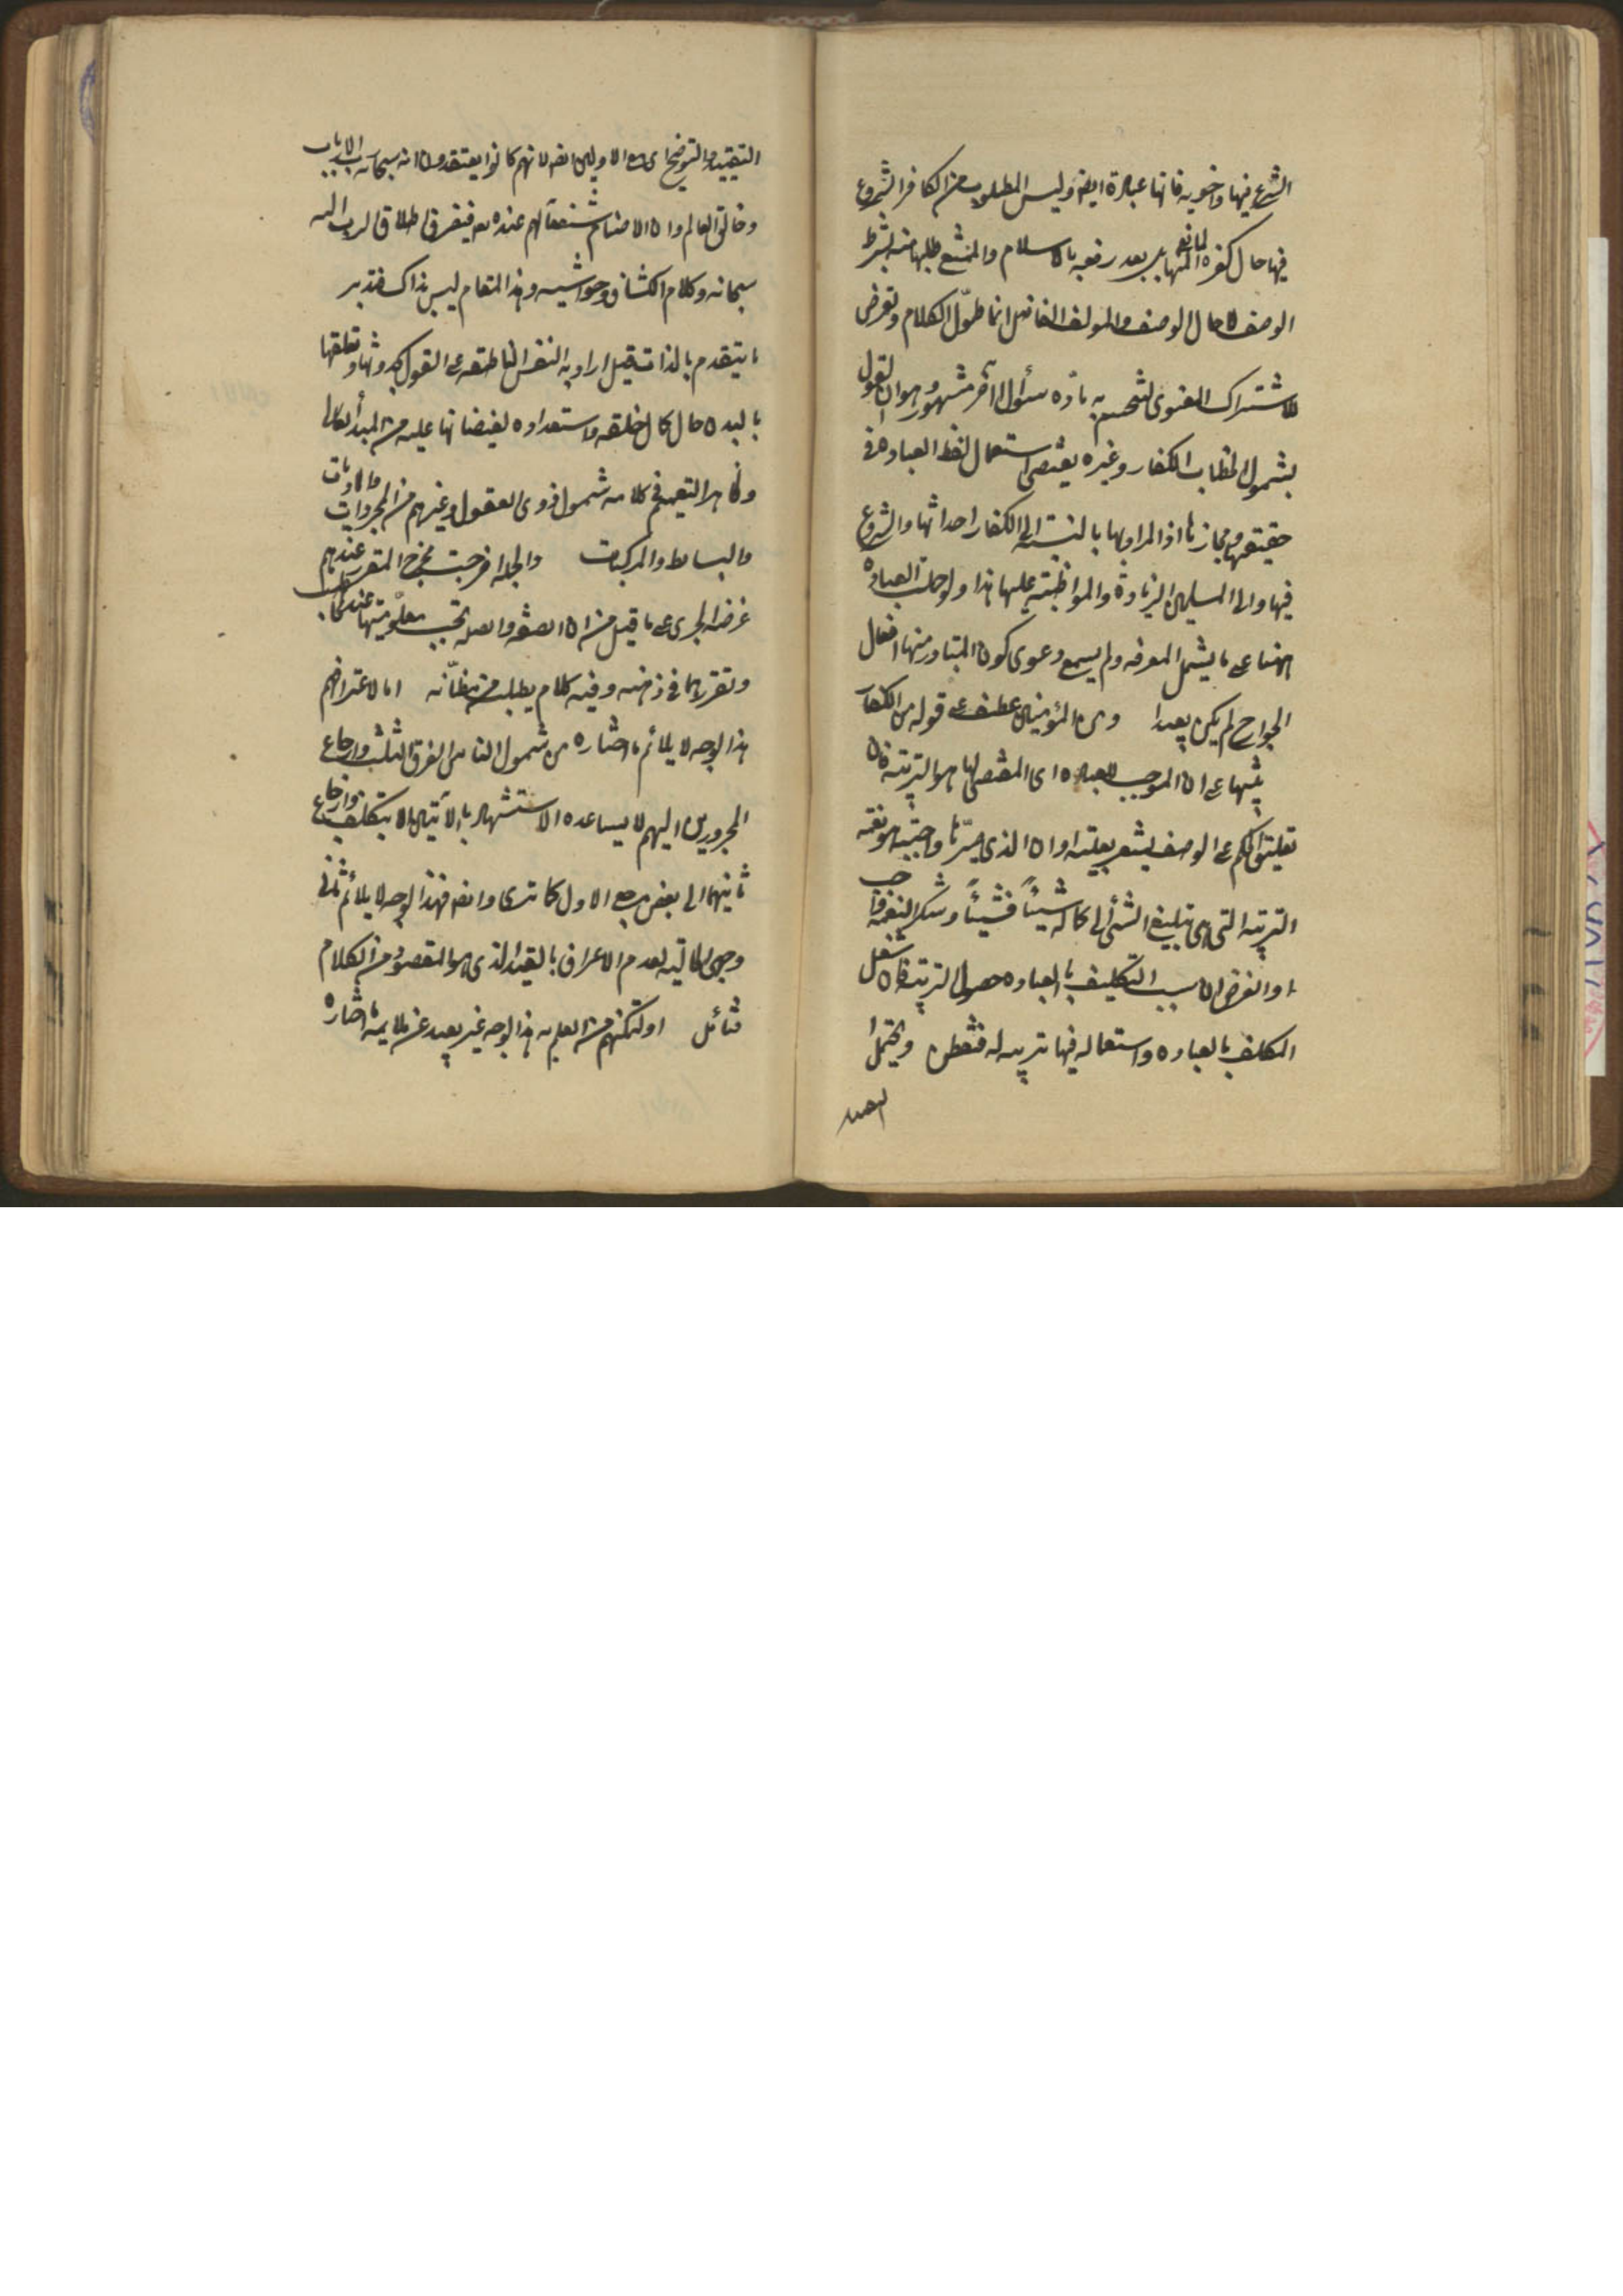 الشرع فيها ونحوه فانها عبادة ايضا وليس المطلوب من الكافر الشروع
فيها حال كفره المانع بل بعد رفعه بالاسلام والممتنع طلبها منه بشرط
الوصف لا حال الوصف والمولف الفاضل انما طوّل الكلام وتعرض
للاشتراك المعنوي ليحسم به مادّه سئوال آخر مشهور وهو ان القول
بشمول الخطاب الكفار وغيره يقتضي استعمال لفظ العباده في
حقيقتها ومجازها اذ المراد بها بالنسبة الى الكفار احداثها والشروع
فيها والى المسلمين الزيادة والمواظبة عليها هذا ولو حملت العبادة
ههنا على ما يشمل المعرفه ولم يسمع دعوى كون المتبادر منها افعال
الجوارح لم يكن بعيدا ومن المؤمنين عطف على قوله من الكفار
تنبيها على ان الموجب للعباده اى المقتضى لها هو التربية فان
تعليق الحكم على الوصف يشعر بعليته او ان الذى صيّرها واجبة هو نعمه
التربية التى هى تبليغ الشئ الى كماله شيئاً فشيئاً وشكر النعمة واجب
او الغرض ان سبب التكليف بالعباده حصول التربية فان شغل
المكلف بالعباده واستعماله فيها تربية له فتفطن ويحتمل
التقييد والتوضيح اى الاولين ايضا لانهم كانوا يعتقدون انه سبحانه رب الارباب
وخالق العالم وان الاصنام شفعآلهم عنده فينصرف اطلاق الرب اليه
سبحانه وكلام الكشاف وحواشيه في هذا المقام ليس بذاك فتدبر
ما يتقدم بالذات قيل اراد به النفس الناطقة على القول بحدوثها وتعلقها
بالبدن حال كمال خلقه واستعداده لفيضانها عليه من المبدأ
وظاهر التعميم في كلامه شمول ذوى العقول وغيرهم من المجردات والماديات
والبسائط والمركبات والجملة اخرجت مخرج المقرر عندهم
غرضه الجرى على ما قيل من ان الصفه والصله تجب معلوميتها عند المخاطب
وتقررهما في ذهنه وفيه كلام يطلب من مظانّه اما لاعترافهم
هذا الوجه لا يلائم ما اختاره من شمول الناس الفرق الثلث وارجاع
المجرورين اليهم لا يساعده الاستشهاد بالآيتين الا بتكلف وارجاع
ثانيهما الى بعض مرجع الاول كما ترى وايضا فهذا الوجه لا يلائم ثانى
وجهى الحالية لعدم الاعراف بالقيد الذى هو المقصود من الكلام
فتأمل او لتمكنهم من العلم به هذا الوجه غير بعيد عن ملايمة ما اختاره